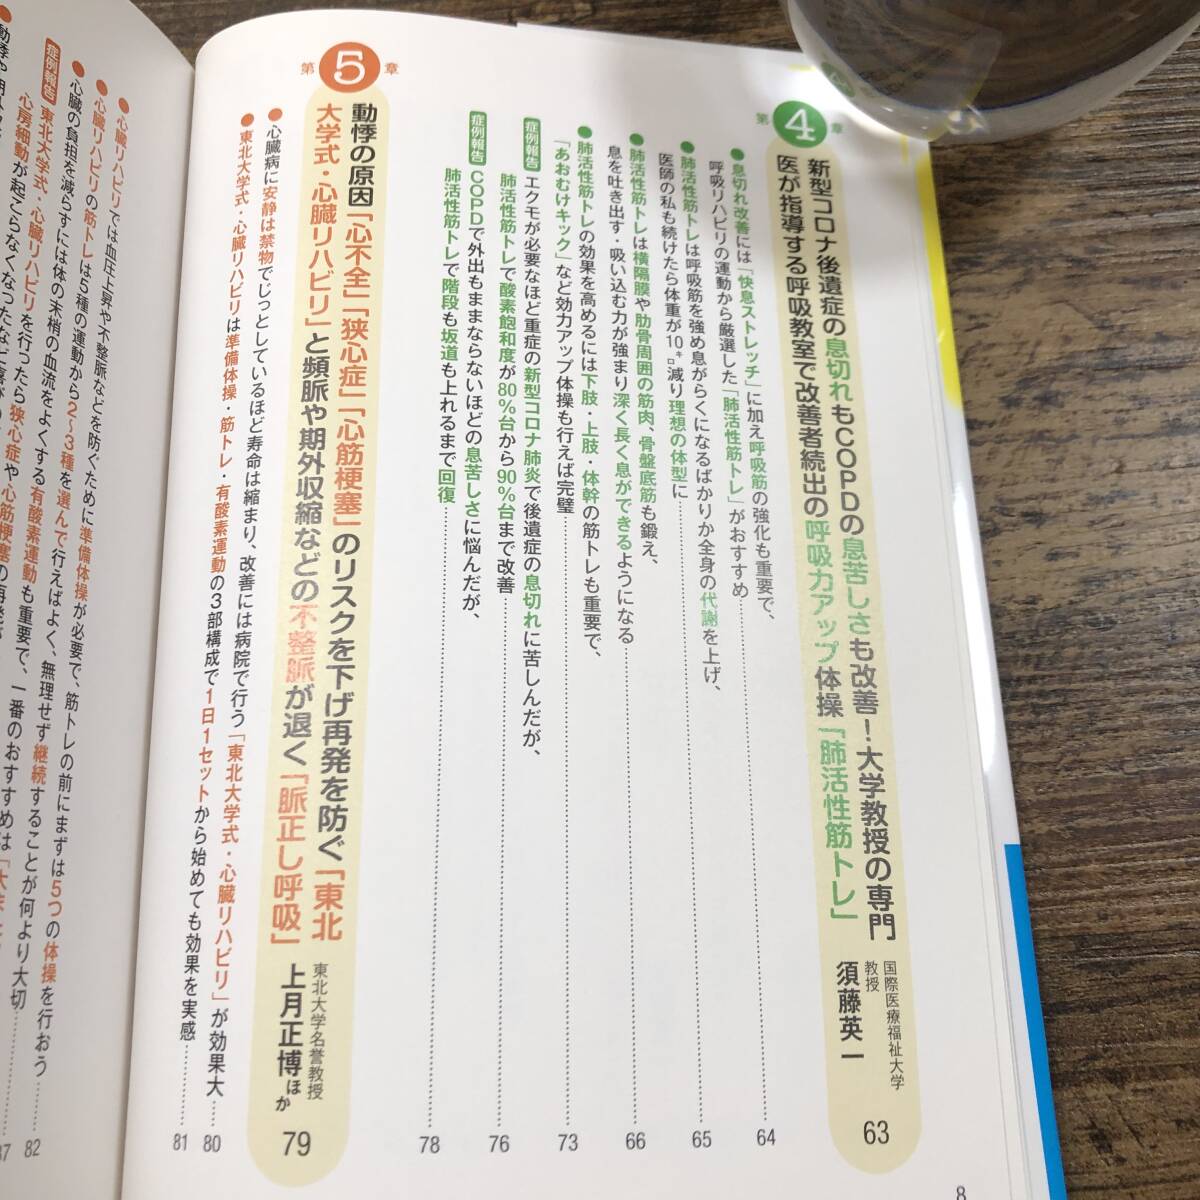 第4章
新型コロナ後遺症の息切れもCOPDの息苦しさも改善!大学教授の専門
医が指導する呼吸教室で改善者続出の呼吸力アップ体操「肺活性筋トレ」
国際医療福祉大学
教授
須藤英一
63
●息切れ改善には「快息ストレッチ」に加え呼吸筋の強化も重要で、
呼吸リハビリの運動から厳選した「肺活性筋トレ」がおすすめ
64
●肺活性筋トレは呼吸筋を強め息がらくになるばかりか全身の代謝を上げ、
医師の私も続けたら体重が10㌔減り理想の体型に
65
●肺活性筋トレは横隔膜や肋骨周囲の筋肉、骨盤底筋も鍛え、
息を吐き出す・吸い込む力が強まり深く長く息ができるようになる
66
●肺活性筋トレの効果を高めるには下肢・上肢・体幹の筋トレも重要で、
「あおむけキック」など効力アップ体操も行えば完璧
73
症例報告 エクモが必要なほど重症の新型コロナ肺炎で後遺症の息切れに苦しんだが、
肺活性筋トレで酸素飽和度が80%台から90%台まで改善
76
症例報告 COPDで外出もままならないほどの息苦しさに悩んだが、
肺活性筋トレで階段も坂道も上れるまで回復
78
第5章
動悸の原因「心不全」「狭心症」「心筋梗塞」のリスクを下げ再発を防ぐ「東北
大学式・心臓リハビリ」と頻脈や期外収縮などの不整脈が退く「脈正し呼吸」
東北大学名誉教授
上月正博ほか
79
●心臓病に安静は禁物でじっとしているほど寿命は縮まり、改善には病院で行う「東北大学式・心臓リハビリ」が効果大
80
●東北大学式・心臓リハビリは準備体操・筋トレ・有酸素運動の3部構成で1日1セットから始めても効果を実感
81
8
●心臓リハビリでは血圧上昇や不整脈などを防ぐために準備体操が必要で、筋トレの前にまずは5つの体操を行おう
82
●心臓リハビリの筋トレは5種の運動から2〜3種を選んで行えばよく、無理せず継続することが何より大切
87
●心臓の負担を減らすには体の末梢の血流をよくする有酸素運動も重要で、一番のおすすめは
症例報告 東北大学式・心臓リハビリを行ったら狭心症や心筋梗塞の再発が
心房細動が起こらなくなったなど喜び